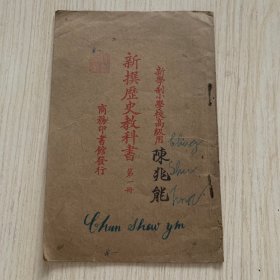 新學制小學校高級用
陳兆能
新撰歷史教科書 第一冊
商務印書館發行
Chun Shew ym